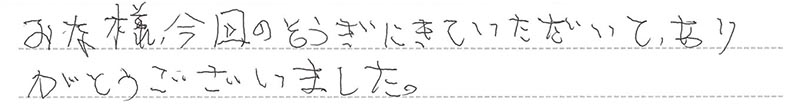 みな様、今回のそうぎにきていただいて、あり
がとうございました。